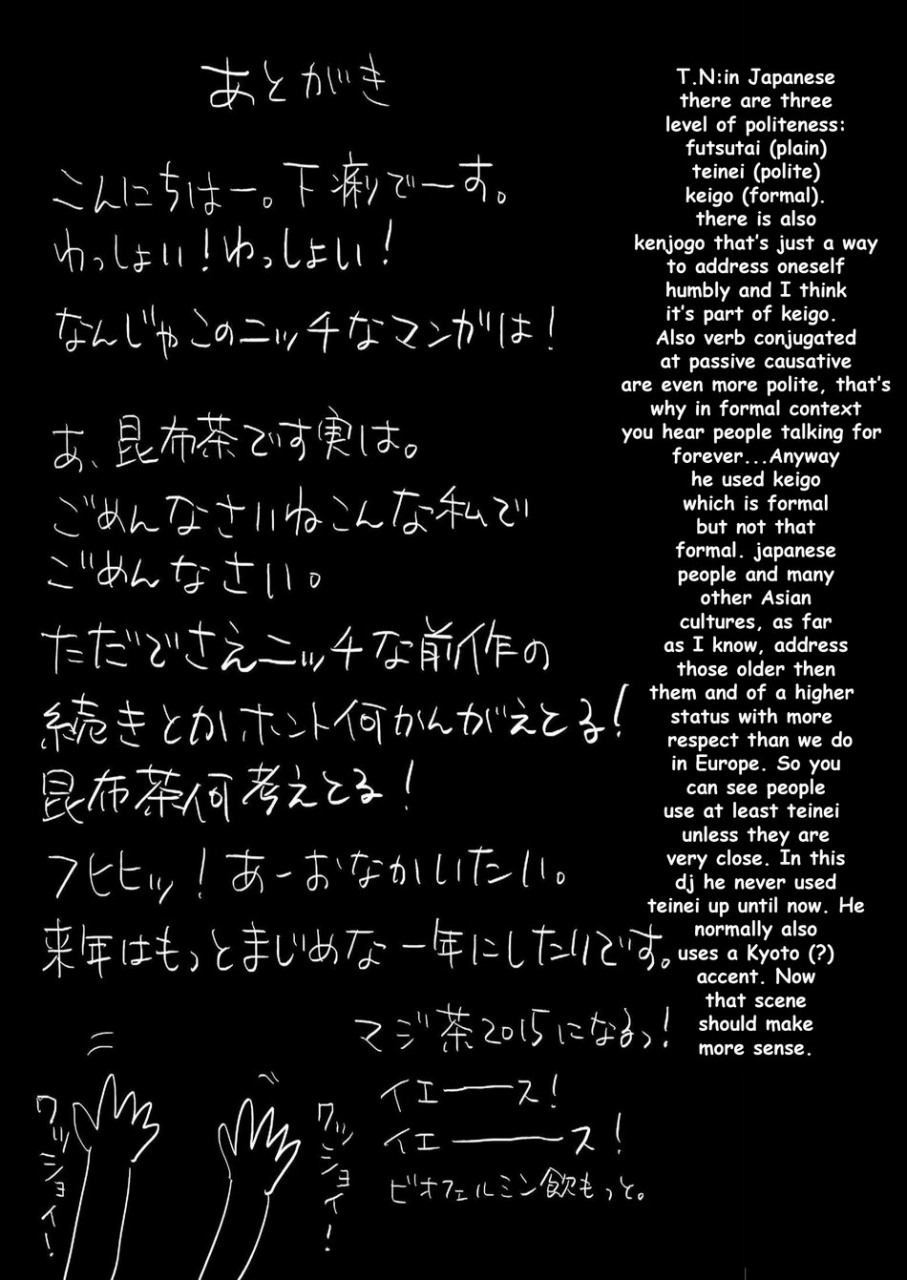 あとがき
こんにちはー。下痢でーす。
わっしょい!わっしょい!
なんじゃこのニッチなマンガは!
あ、昆布茶です実は。
ごめんなさいねこんな私で
ごめんなさい。
ただでさえニッチな前作の
続きとかホント何かんがえとる!
昆布茶何考えとる!
フヒヒッ!あーおなかいたい。
来年はもっとまじめな一年にしたいです。
マジ茶2015になるっ!
イエーース!
イエーーース!
ビオフェルミン飲もっと。
ワッショイ!
ワッショイ!
T.N:in Japanese
there are three
level of politeness:
futsutai (plain)
teinei (polite)
keigo (formal).
there is also
kenjogo that's just a way
to address oneself
humbly and I think
it's part of keigo.
Also verb conjugated
at passive causative
are even more polite, that's
why in formal context
you hear people talking for
forever...Anyway
he used keigo
which is formal
but not that
formal. japanese
people and many
other Asian
cultures, as far
as I know, address
those older then
them and of a higher
status with more
respect than we do
in Europe. So you
can see people
use at least teinei
unless they are
very close. In this
dj he never used
teinei up until now. He
normally also
uses a Kyoto (?)
accent. Now
that scene
should make
more sense.